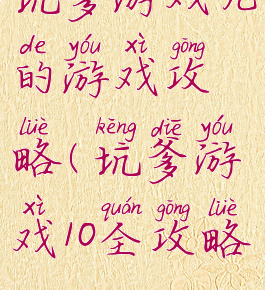 坑爹游戏
de yóu xì gōng
的游戏攻
lüè kēng diē yóu
略(坑爹游
xì quán gōng lüè
戏10全攻略